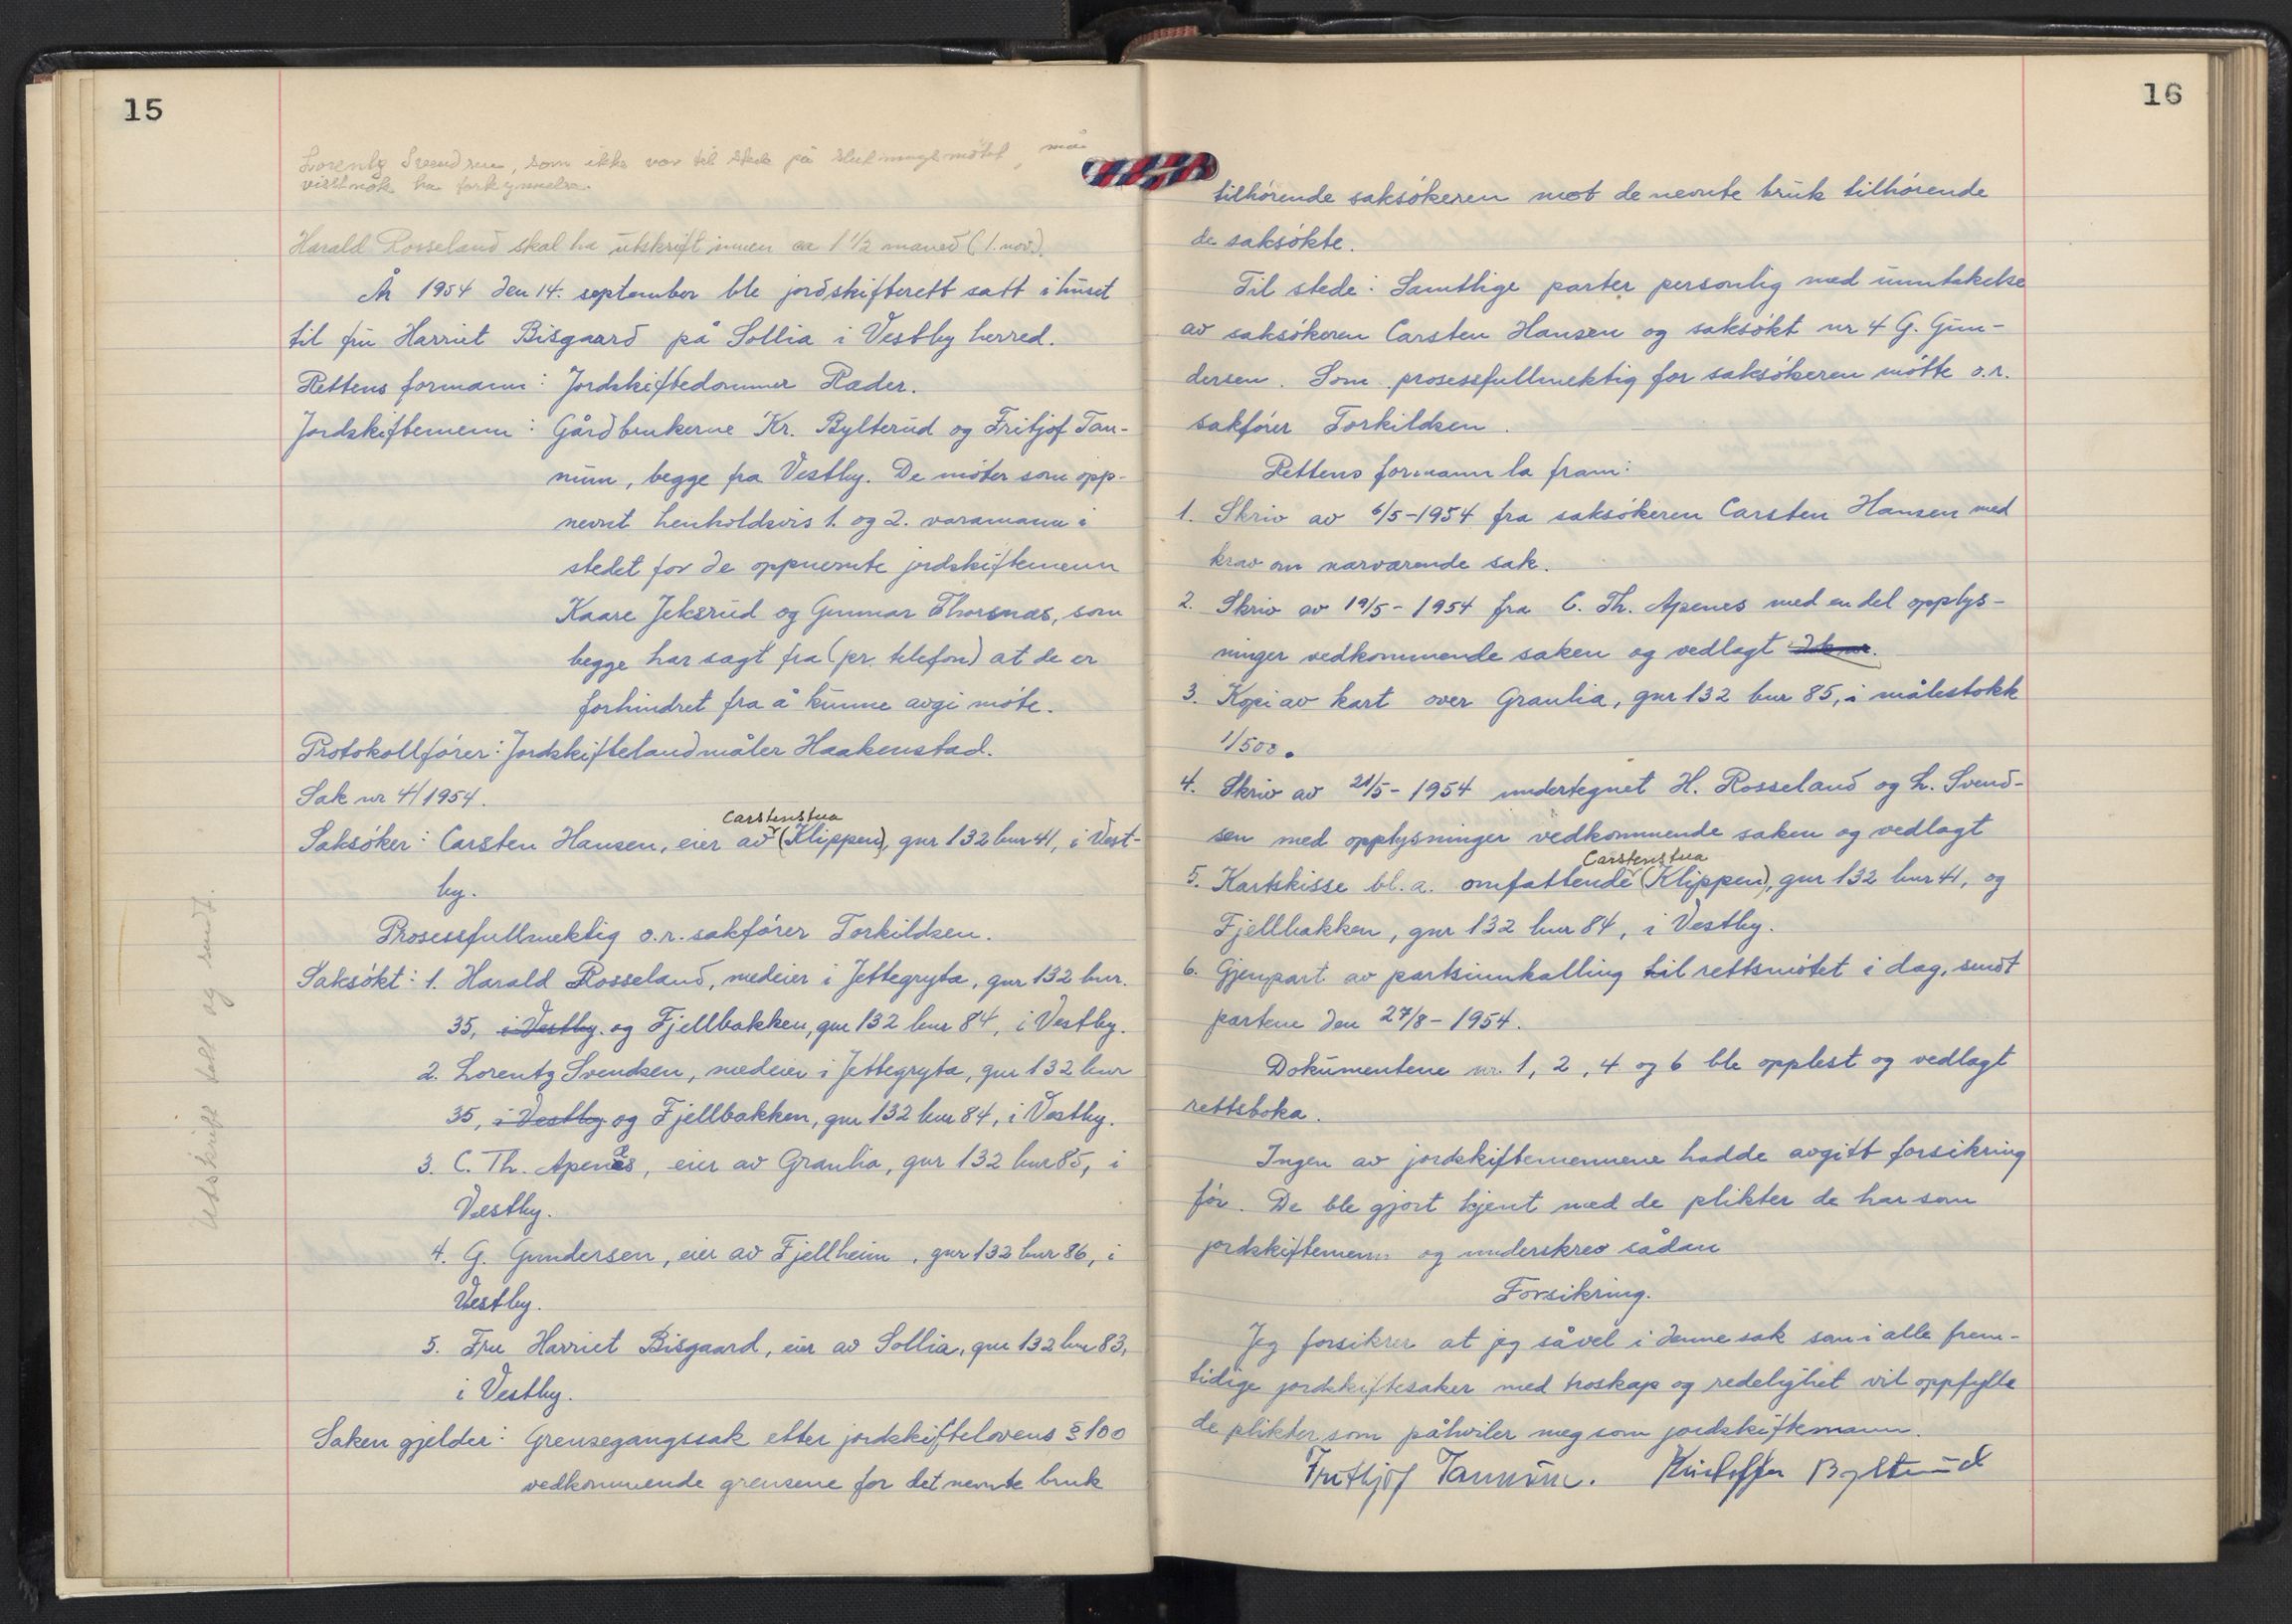 15
Lorentz Svendsen, som ikke var til stede på slutningsmøtet, må
visstnok ha forkynnelse.
Harald Rosseland skal ha utskrift innen ca 1 1/2 måned (1. nov).
År 1954 den 14. september ble jordskifterett satt i huset
til fru Harriet Bisgaard på Sollia i Vestby herred.
Rettens formann: Jordskiftedommer Ræder.
Jordskiftemenn: Gårdbrukerne Kr. Bylterud og Fritjof Tan-
num, begge fra Vestby. De møter som opp-
nevnt henholdsvis 1. og 2. varamann i
stedet for de oppnevnte jordskiftemenn
Kaare Jeksrud og Gunnar Thorsnæs, som
begge har sagt fra (pr. telefon) at de er
forhindret fra å kunne avgi møte.
Protokollfører: Jordskiftelandmåler Haakenstad.
Sak nr 4/1954.
Carstenstua
Saksøker: Carsten Hansen, eier av (Klippen), gnr 132 bnr 41, i Vest-
by.
Prosessfullmektig o.r. sakfører Torkildsen.
Saksøkt: 1. Harald Rosseland, medeier i Jettegryta, gnr 132 bnr.
35, i Vestby. og Fjellbakken, gnr 132 bnr 84, i Vestby.
2. Lorentz Svendsen, medeier i Jettegryta, gnr 132 bnr
35, i Vestby og Fjellbakken, gnr 132 bnr 84, i Vestby.
3. C. Th. Apenes, eier av Granlia, gnr 132 bnr 85, i
Vestby.
4. G. Gundersen, eier av Fjellheim, gnr 132 bnr 86, i
Vestby.
5. Fru Harriet Bisgaard, eier av Sollia, gnr 132 bnr 83,
i Vestby.
Saken gjelder: Grensegangssak etter jordskiftelovens § 100
vedkommende grensene for det nevnte bruk
Utskrift tatt og sendt.
16
tilhørende saksøkeren mot de nevnte bruk tilhørende
de saksøkte.
Til stede: Samtlige parter personlig med unntakelse
av saksøkeren Carsten Hansen og saksøkt nr 4 G. Gun-
dersen. Som prosessfullmektig for saksøkeren møtte o.r.
sakfører Torkildsen.
Rettens formann la fram:
1. Skriv av 6/5-1954 fra saksøkeren Carsten Hansen med
krav om nærværende sak.
2. Skriv av 19/5-1954 fra C. Th. Apenes med en del opplys-
ninger vedkommende saken og vedlagt
3. Kopi av kart over Granlia, gnr 132 bnr 85, i målestokk
1/500.
4. Skriv av 21/5-1954 undertegnet H. Rosseland og L. Svend-
sen med opplysninger vedkommende saken og vedlagt
Carstenstua
5. Kartskisse bl.a. omfattende (Klippen), gnr 132 bnr 41, og
Fjellbakken, gnr 132 bnr 84, i Vestby.
6. Gjenpart av partsinnkalling til rettsmøtet i dag, sendt
partene den 27/8-1954.
Dokumentene nr. 1, 2, 4 og 6 ble opplest og vedlagt
rettsboka.
Ingen av jordskiftemennene hadde avgitt forsikring
før. De ble gjort kjent med de plikter de har som
jordskiftemenn og underskrev sådan
Forsikring.
Jeg forsikrer at jeg såvel i denne sak som i alle frem-
tidige jordskiftesaker med troskap og redelighet vil oppfylle
de plikter som påhviler meg som jordskiftemann.
Frithjof Tannum. Kristoffer Bylterud